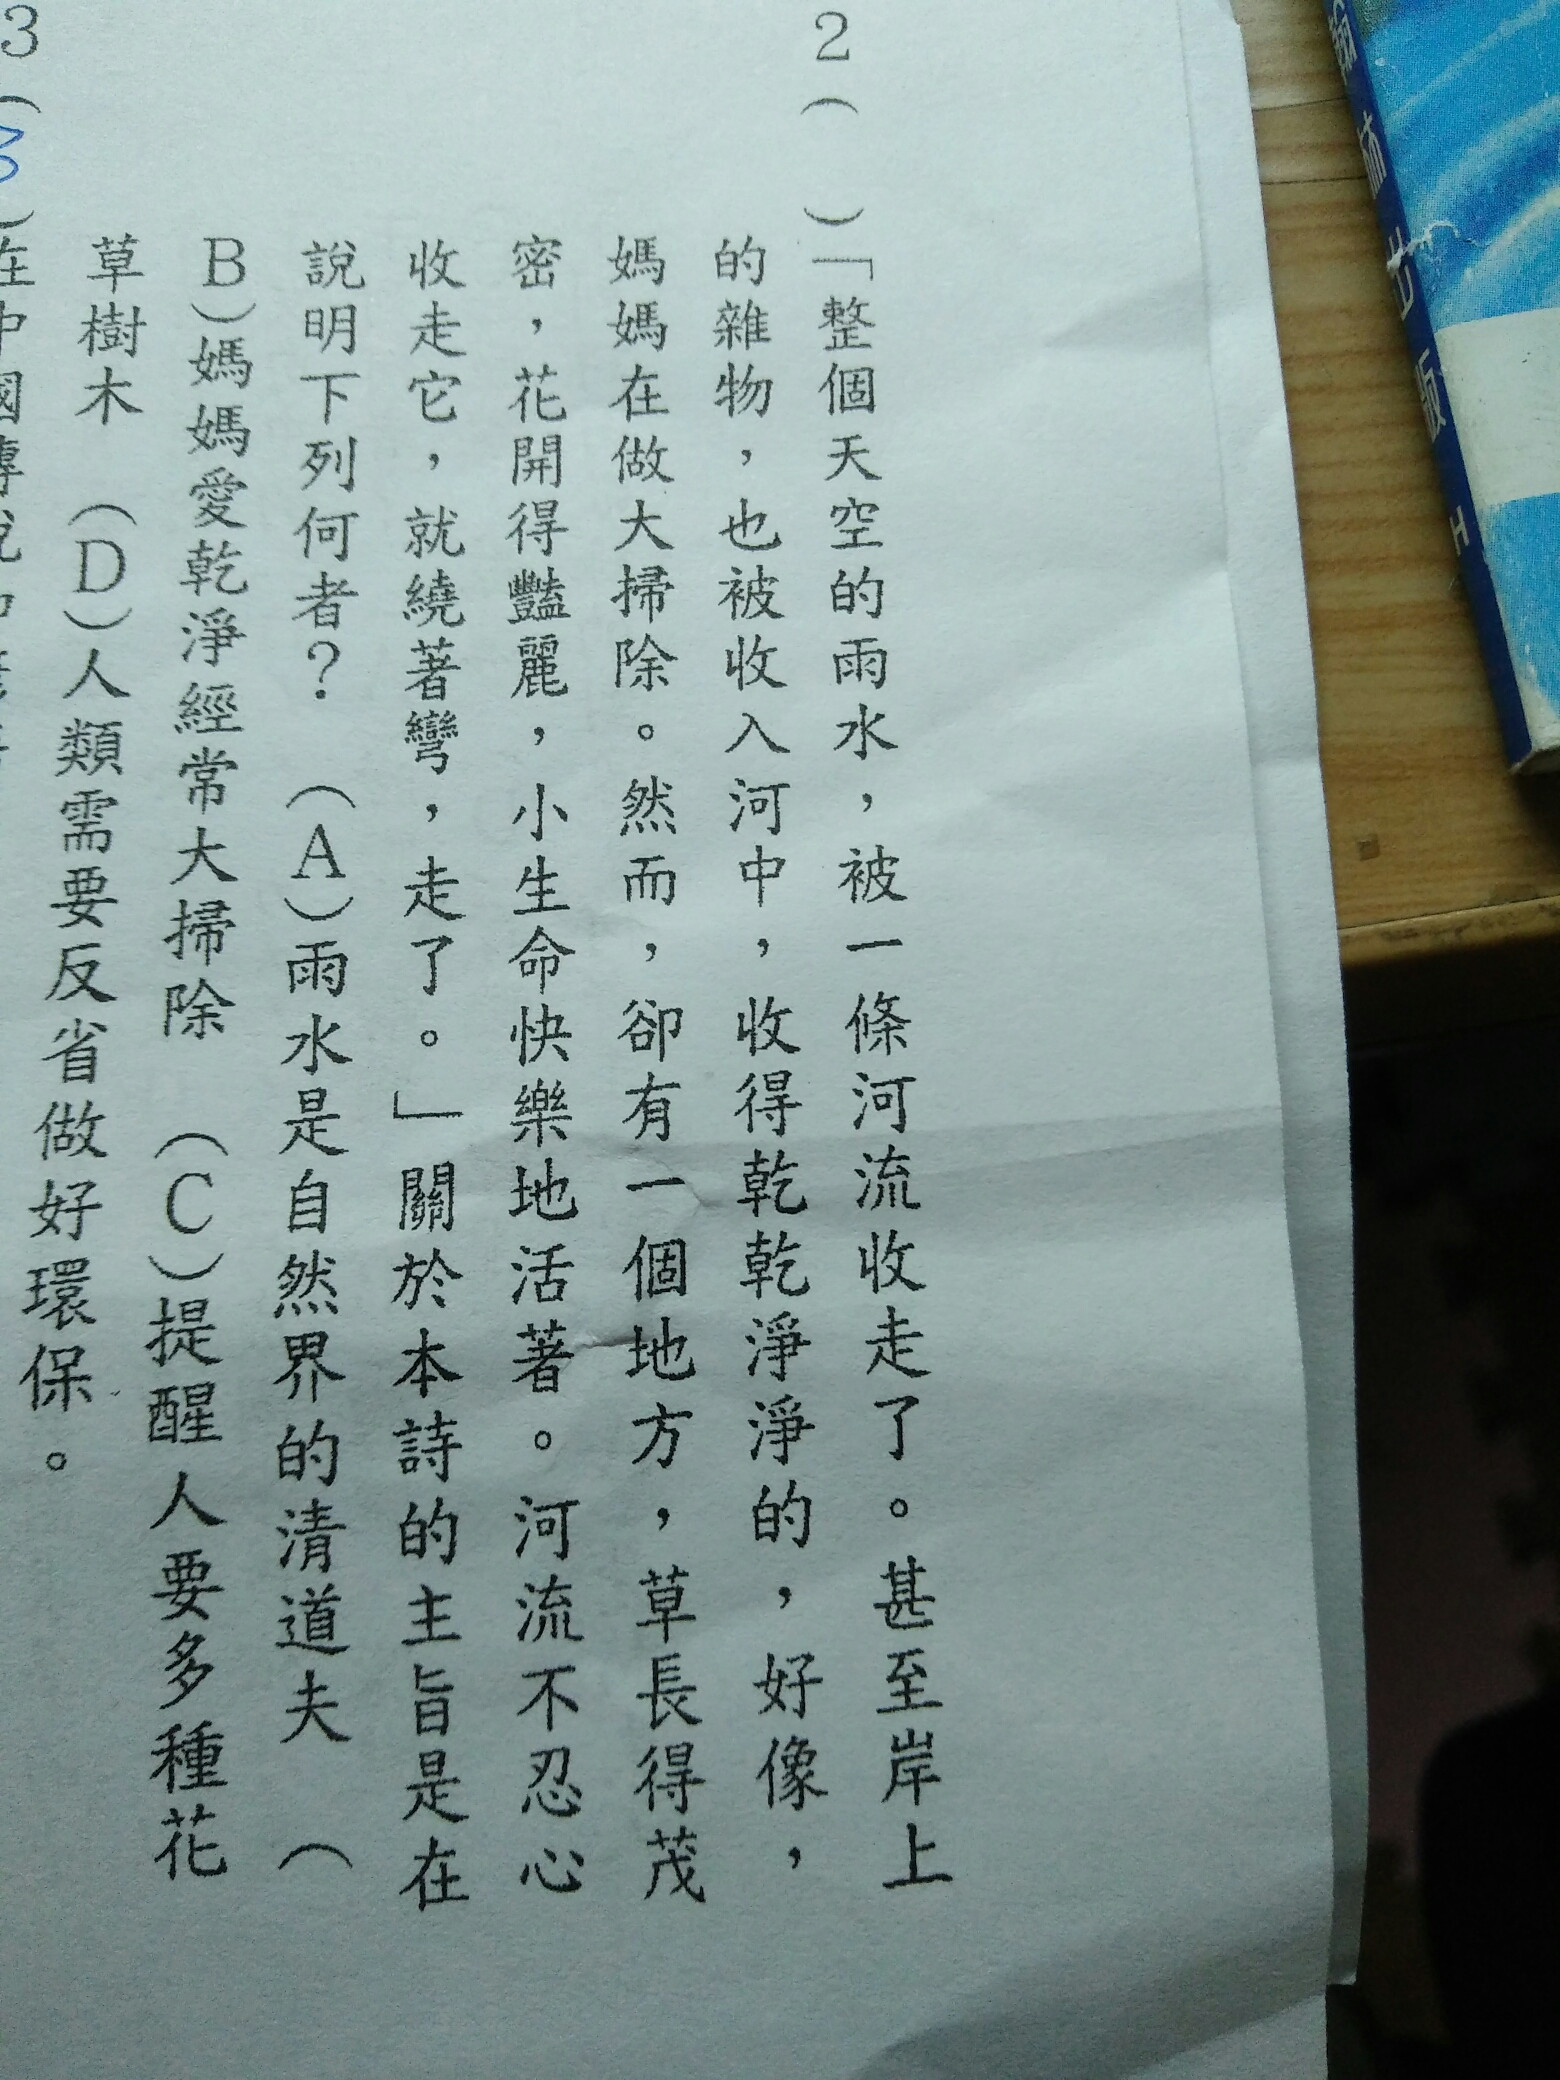 2（　）「整個天空的雨水，被一條河流收走了。甚至岸上
的雜物，也被收入河中，收得乾乾淨淨的，好像，
媽媽在做大掃除。然而，卻有一個地方，草長得茂
密，花開得豔麗，小生命快樂地活著。河流不忍心
收走它，就繞著彎，走了。」關於本詩的主旨是在
說明下列何者？（A）雨水是自然界的清道夫（
B）媽媽愛乾淨經常大掃除（C）提醒人要多種花
草樹木（D）人類需要反省做好環保。
3（3）在中國傳說
出版